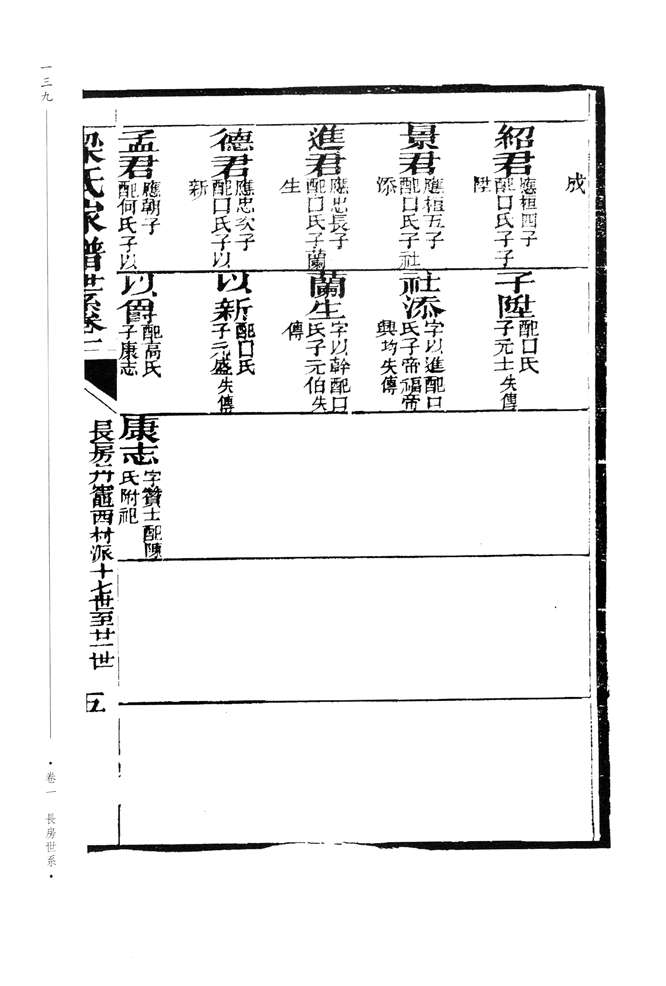 成
紹君 應桓四子
配口氏子子
陞
景君 應桓五子
配口氏子社
添
進君 應忠長子
配口氏子蘭
生
德君 應忠次子
配口氏子以
新
孟君 應朝子
配何氏子以
子陞 配口氏
子元士失傳
社添 字以進配口
氏子帝福帝
興均失傳
蘭生 字以幹配口
氏子元伯失
傳
以新 配口氏
子元盛失傳
以爵 配高氏
子康志
康志 字贊士配陳
氏附祀
梁氏家譜世系卷一
長房丹竈西村派十七世至廿一世
五
一三九
·卷一 長房世系·